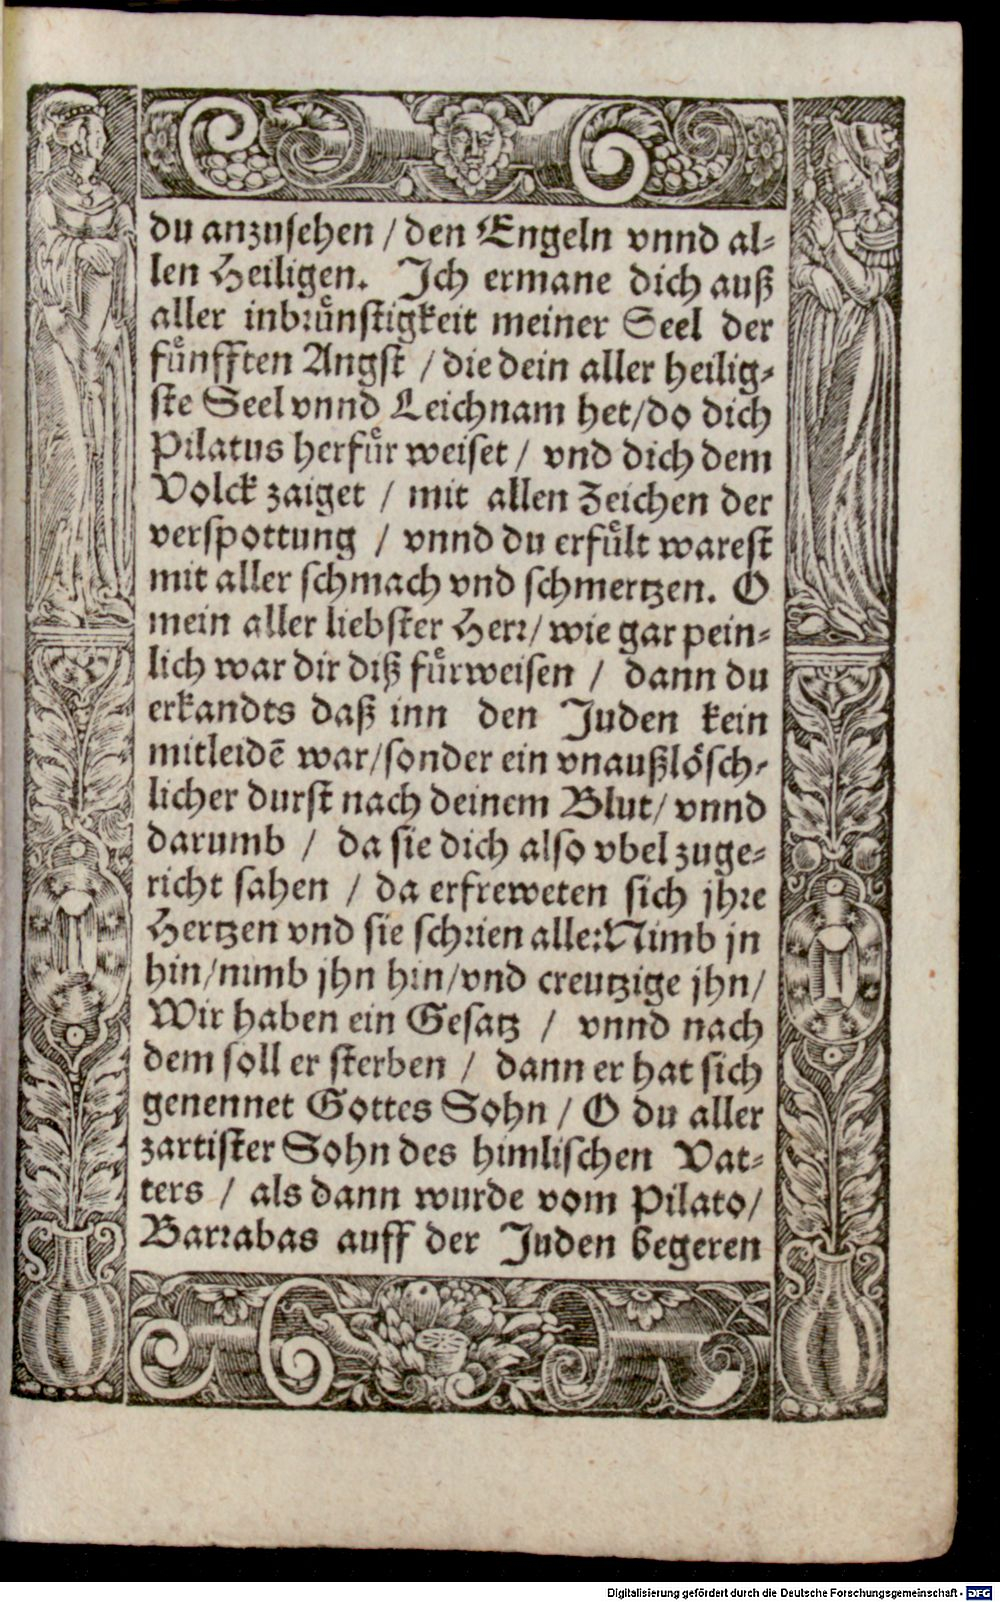 du anzusehen / den Engeln vnnd al⸗
len Heiligen. Ich ermane dich auß
aller inbrünstigkeit meiner Seel der
fünfften Angst / die dein aller heilig⸗
ste Seel vnnd Leichnam het / do dich
Pilatus herfür weiset / vnd dich dem
Volck zaiget / mit allen Zeichen der
verspottung / vnnd du erfült warest
mit aller schmach vnd schmertzen. O
mein aller liebster Herr / wie gar pein⸗
lich war dir diß fürweisen / dann du
erkandts daß inn den Juden kein
mitleidē war / sonder ein vnaußlösch⸗
licher durst nach deinem Blut / vnnd
darumb / da sie dich also vbel zuge⸗
richt sahen / da erfreweten sich jhre
Hertzen vnd sie schrien alle: Nimb jn
hin / nimb jhn hin / vnd creutzige jhn /
Wir haben ein Gesatz / vnnd nach
dem soll er sterben / dann er hat sich
genennet Gottes Sohn / O du aller
zartister Sohn des himlischen Vat⸗
ters / als dann wurde vom Pilato /
Barrabas auff der Juden begeren
Digitalisierung gefördert durch die Deutsche Forschungsgemeinschaft - DFG